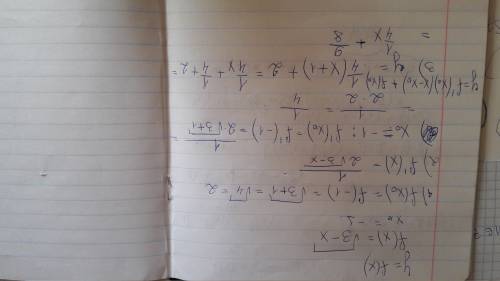 y=f(x)
f(x)=√3-x
x₀=-1
1) f(x₀)=f(-1)=√3+1=√4=2
2) f'(x)=1/(2√3-x)
x₀=-1; f'(x₀)=f'(-1)=1/(2·√3+1)=
=1/(2·2)=1/4
y=f'(x₀)(x-x₀)+f(x₀)
3) y=1/4(x+1)+2=1/4x+1/4+2=
=1/4x+9/8